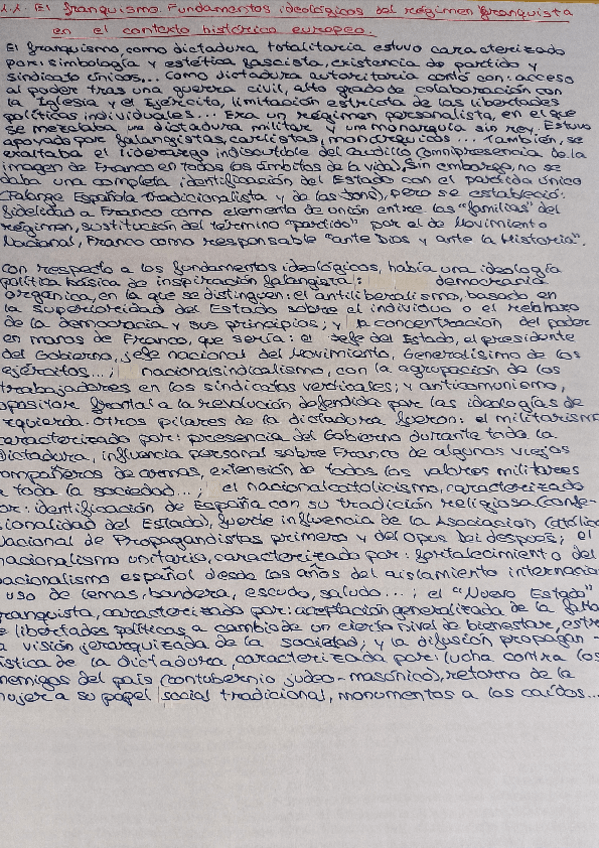 1.1. El franquismo. Fundamentos ideológicos del régimen franquista
en el contexto histórico europeo.
El franquismo, como dictadura totalitaria estuvo caracterizado
por: simbología y estética fascista, existencia de partido y
sindicato únicos,... Como dictadura autoritaria contó con: acceso
al poder tras una guerra civil, alto grado de colaboración con
la Iglesia y el Ejército, limitación estricta de las libertades
políticas individuales... Era un régimen personalista, en el que
se mezclaba una dictadura militar y una monarquía sin rey. Estuvo
apoyado por falangistas, carlistas, monárquicos... También, se
exaltaba el liderazgo indiscutible del Caudillo (omnipresencia de la
imagen de Franco en todos los ámbitos de la vida). Sin embargo, no se
daba una completa identificación del Estado con el partido único
(Falange Española Tradicionalista y de las Jons), pero se estableció:
fidelidad a Franco como elemento de unión entre las "familias" del
régimen, sustitución del término "partido" por el de Movimiento
Nacional, Franco como responsable "ante Dios y ante la Historia".
Con respecto a los fundamentos ideológicos, había una ideología
política básica de inspiración falangista: democracia
orgánica, en la que se distinguen: el antiliberalismo, basado en
la superioridad del Estado sobre el individuo o el rechazo
de la democracia y sus principios; y la concentración del poder
en manos de Franco, que sería: el Jefe del Estado, el presidente
del Gobierno, jefe nacional del Movimiento, Generalísimo de los
ejércitos...; nacionalsindicalismo, con la agrupación de los
trabajadores en los sindicatos verticales; y anticomunismo,
opositor frontal a la revolución defendida por las ideologías de
izquierda. Otros pilares de la dictadura fueron: el militarismo
caracterizado por: presencia del Gobierno durante toda la
dictadura, influencia personal sobre Franco de algunos viejos
compañeros de armas, extensión de todos los valores militares
a toda la sociedad...; el nacionalcatolicismo, caracterizado
por: identificación de España con su tradición religiosa (confe-
sionalidad del Estado), fuerte influencia de la Asociación Católica
Nacional de Propagandistas primero y del Opus Dei después; el
nacionalismo unitario, caracterizado por: fortalecimiento del
nacionalismo español desde los años del aislamiento internacional
uso de lemas, bandera, escudo, saludo...; el "Nuevo Estado"
franquista, caracterizado por: aceptación generalizada de la falta
de libertades políticas a cambio de un cierto nivel de bienestar,
a visión jerarquizada de la sociedad; y la difusión propagan-
dística de la dictadura, caracterizada por: lucha contra los
enemigos del país (contubernio judeo-masónico), retorno de la
mujer a su papel social tradicional, monumentos a los caídos...